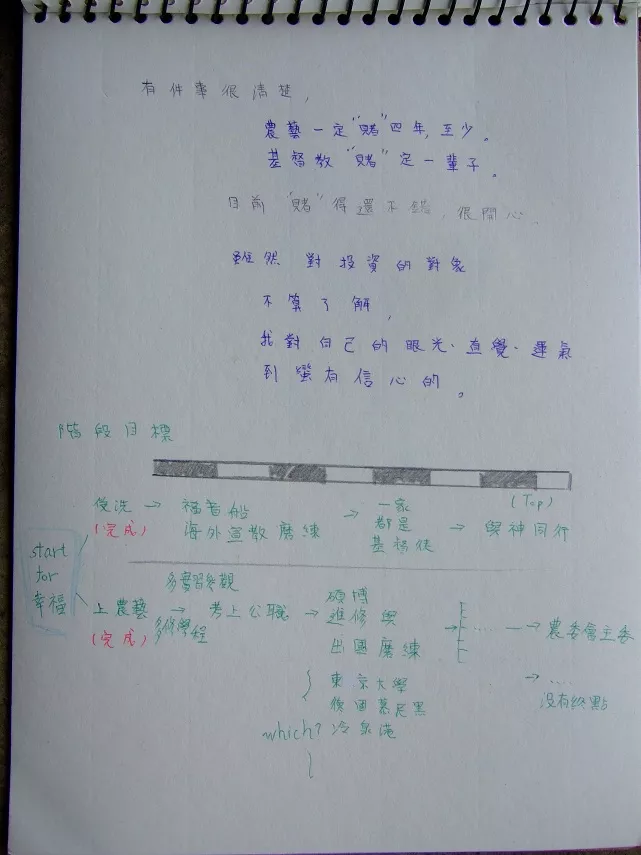 有件事很清楚,
農藝一定"賭"四年,至少。
基督教"賭"定一輩子。
目前"賭"得還不錯,很開心.
雖然對投資的對象
不算了解,
我對自己的眼光、直覺、運氣
到蠻有信心的。
階段目標
受洗 → 福音船
(完成) 海外宣教磨練 →
一家
都是
基督徒 →
(Top)
與神同行
start
for
幸福
多實習參觀
上農藝 → 考上公職 →
(完成) 多修學程
碩博
進修與
出國磨練
→ ..... → 農委會主委
→ ....
沒有終點
東京大學
德國慕尼黑
which? 冷泉港